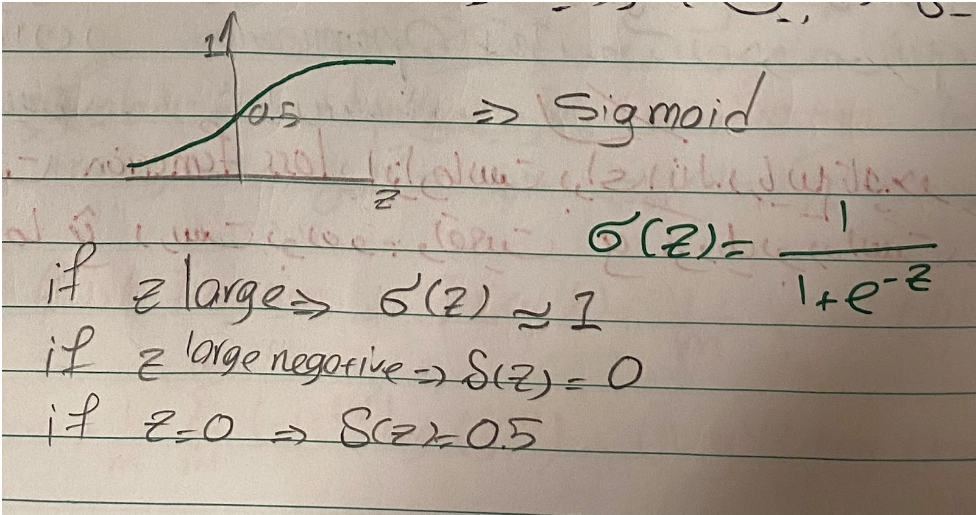 1
0.5
⇒ Sigmoid
z
σ(z) = 1 / (1 + e^-z)
if z large ⇒ σ(z) ≃ 1
if z large negative ⇒ δ(z) = 0
if z = 0 ⇒ δ(z) = 0.5